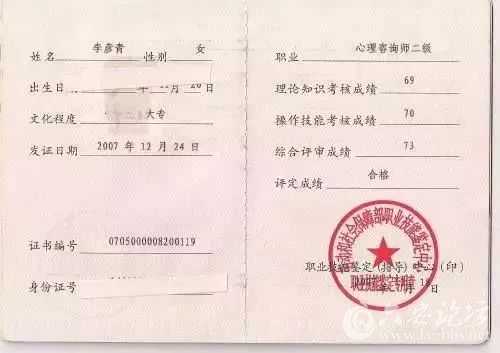 姓名 李彦青 性别 女
出生日 月 20 日
文化程度 大专
发证日期 2007 年 12 月 24 日
证书编号 0705000008200119
身份证号
职业 心理咨询师二级
理论知识考核成绩 69
操作技能考核成绩 70
综合评审成绩 73
评定成绩 合格
和社会保障部职业技能鉴定中心
职业技能鉴定(指导)中心(印)
职业技能鉴定专用章
年 月 18 日